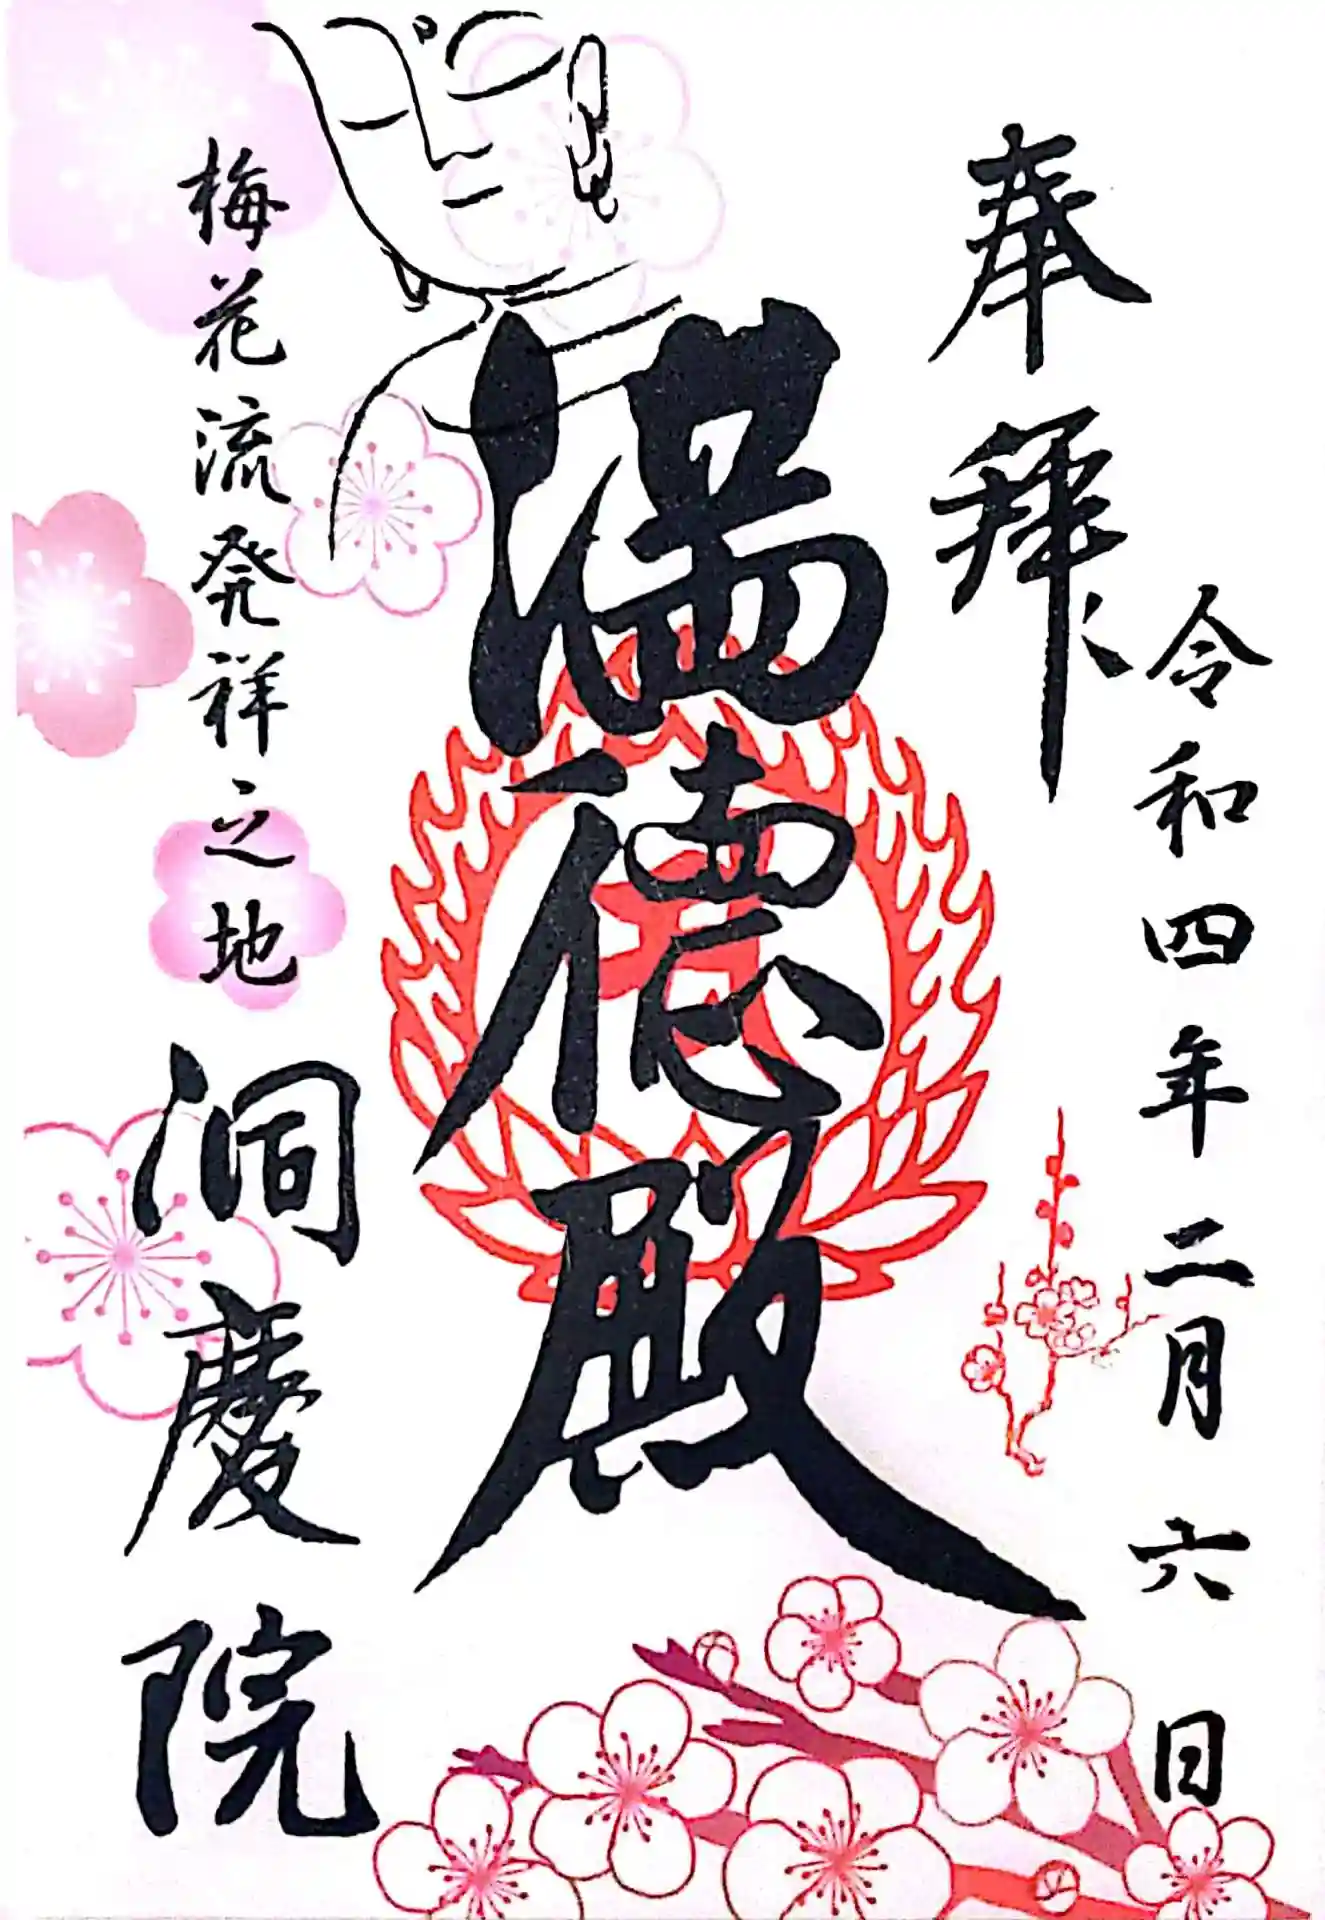 奉拜
令和四年二月六日
満德殿
梅花流発祥之地
洞慶院